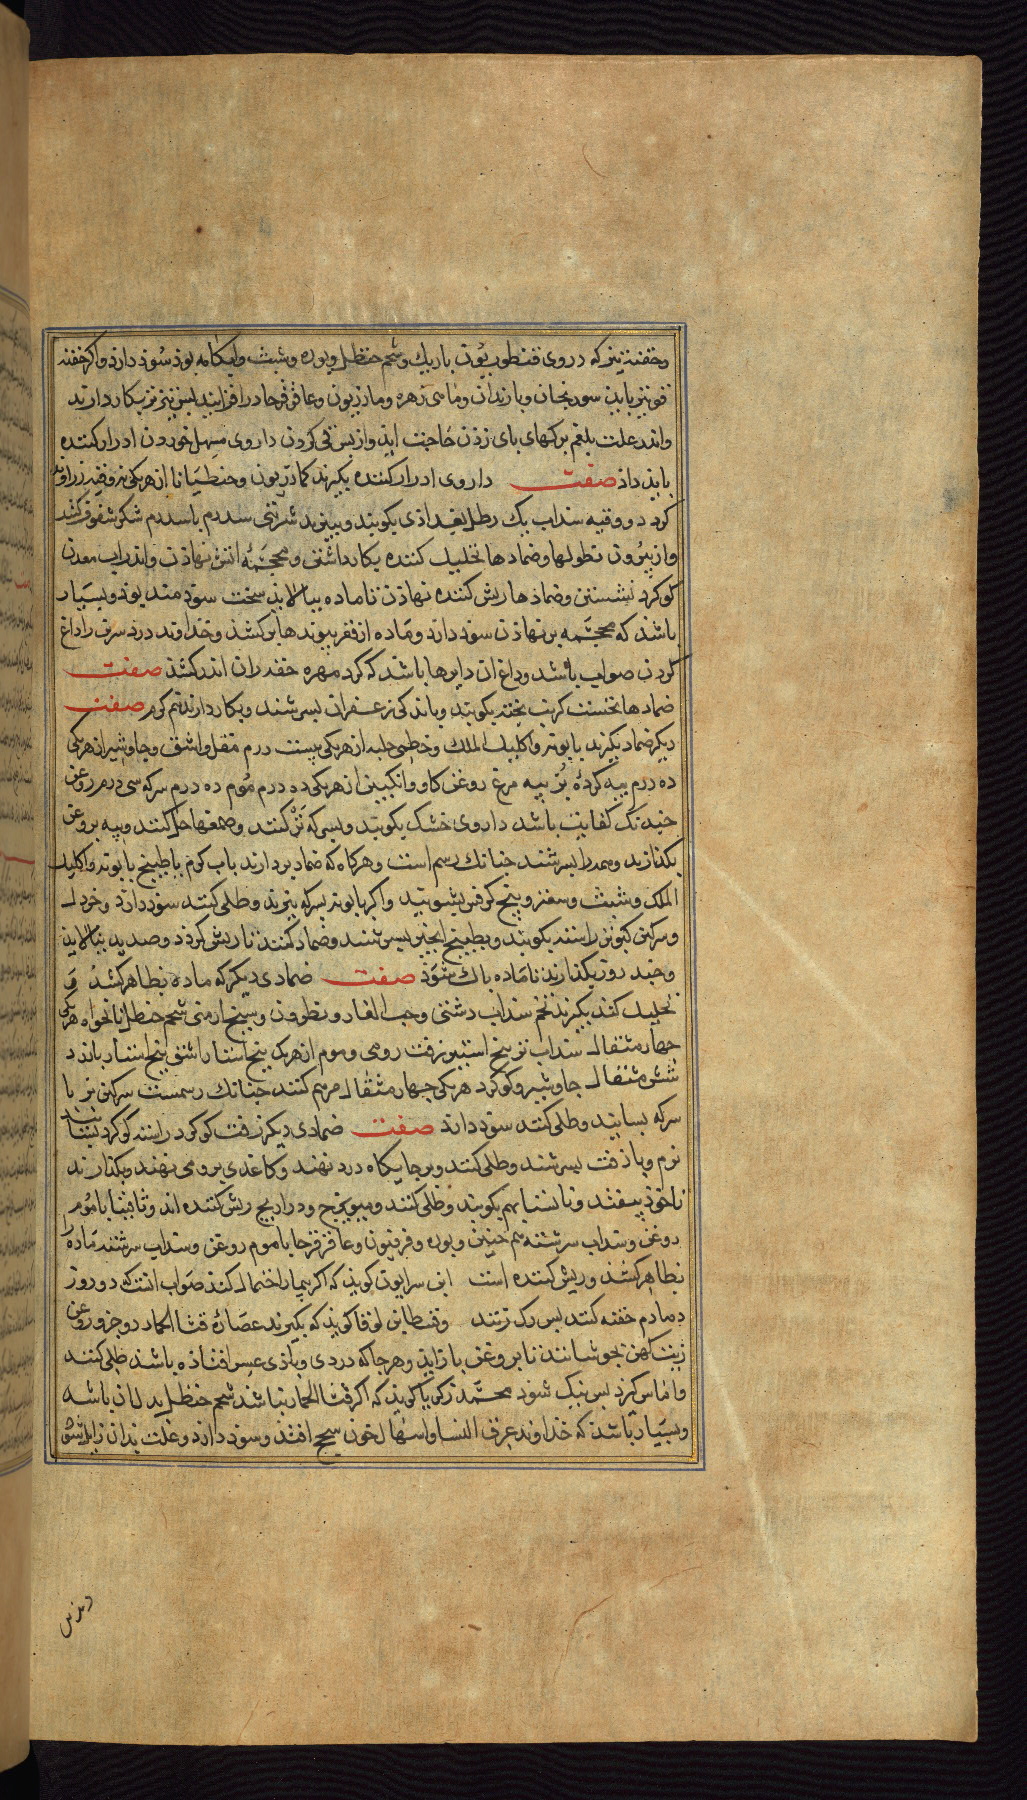 وحقنه تیز که در وی قنطوریون باریک وشحم حنظل وبوره وشبث وآبکامه بوذ سوذ دارد واکر حقنه
قوی تر بایذ سورنجان وبازندان وماهی زهره ومازریون وعاقرقرحا در افزایند لیس نیز تر بکار دارند
واندر علت بلغم برکهای بای زذن حاجت ایذ واز بس قی کردن داروی مسهل خوردن ادرار کننده
بایذ داذ صفت داروی ادرار کننده بکیرند کمادریون وجنطیانا از هر یکی نه وقیه زراوند
کرد دو وقیه سنداب یک رطل بکوبند وببیزند شربتی سه درم با سه درم شکر
واز بیرون نطولها وضمادها تحلیل کننده بکار داشتن ومحجمه اتش نهاذن واندر اب معدن
کوکرد نشستن وضمادها ریش کننده نهاذن تا ماده ببالایذ سخت سوذمند بوذ وبسیار
باشذ که محجمه بر نهاذن سوذ دارد وماده از قعر بیوندها برکشذ وخذاوند درد سرین را داغ
کردن صواب باشد وداغ ان دایرها باشد که کرد مهره حقه ران اندر کشند صفت
ضمادها نخست کرنب بخته بکوبند وباندکی زعفران بسرشند وبکار دارند نیم کرم صفت
دیکر ضماد بکیرند بابونه واکلیل الملک وخطمی حلبه از هر یکی بیست درم مقل واشق وجاوشیر از هر یکی
ده درم بیه کرده بز بیه مرغ روغن کاو وانکبین از هر یکی ده درم موم ده درم سرکه سی درم روغن
جندانک کفایت باشد داروی خشک بکوبند وبسرکه تر کنند وصمغها حل کنند وبیه بروغن
بکذازند وهمه را بسرشند جنانک رسم است وهرکاه که ضماد بردارند باب کرم با طبیخ بابونه واکلیل
الملک وشبث وسعتر وبیخ کرفس بشویند واکر بابونه بسرکه ببزند وطلی کنند سوذ دارد وخردل
وسرکین کبوتر راسته بکوبند وبطبیخ انجیر بسرشند وضماد کنند تا ریش کردد وصدید ببالایذ
وجند روز بکذارند تا ماده باک شوذ صفت ضمادی دیکر که ماده بظاهر کشذ و
تحلیل کند بکیرند تخم سنداب دشتی وحب الغار ونطرون وشیح ارمنی شحم حنظل نانخواه هریکی
جهار مثقال سنداب تر بنج استیر زفت رومی وموم از هر یک بنج استار اشق بنج استار بارزد
شش مثقال جاوشیر وکوکرد هر یکی جهار مثقال مرهم کنند جنانک رسمست سرکین بز با
سرکه بسایند وطلی کنند سوذ دارد صفت ضمادی دیکر زفت کوکرد راسته کوکرد بسایند
نرم وباز زفت بسرشند وطلی کنند وبر جایکاه درد نهند وکاغذی بر وی نهند وبکذارند
تا خوذ بیفتد وتافسیا بهم بکوبند وطلی کنند ومیویزج ودراریج ریش کننده اند وثافسیا با موم
روغن وسنداب سرشته هم جنین وبوره وفرفیون وعاقرقرحا با موم روغن وسنداب سرشته ماده را
بظاهر کشذ وریش کننده است ابن سرابیون کویذ که اکر بیمار احتمال کند صواب انست که دو روز
دمادم حقنه کنند بس رک زنند وقسطا بن لوقا کویذ که بکیرند عصاره قثا الحمار دو جزو روغن
زیت کهن بجوشانند تا بروغن باز ایذ وهر جا که دردی وباذی عسر افتاذه باشد طلی کنند
واماس کیرد بس نیک شوذ محمد زکریا کویذ که اکر قثا الحمار نباشذ شحم حنظل بدل ان باشد
وبسیار باشذ که خذاوند عرق النسا را اسهال خون سحج افتذ وسوذ دارد وعلت بذان زایل شوذ